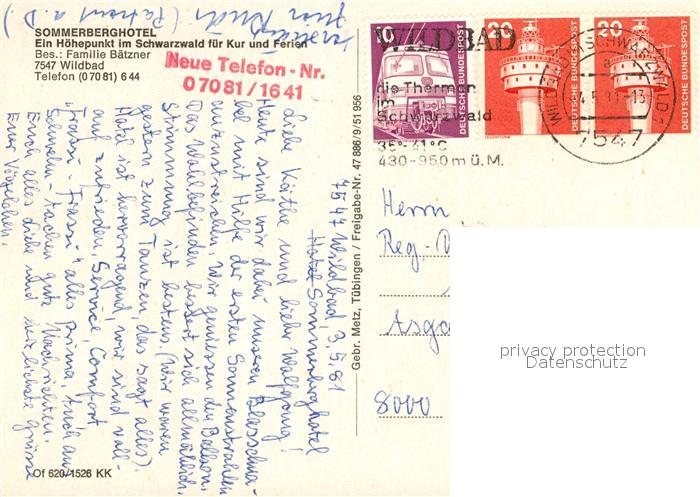 SOMMERBERGHOTEL
Ein Höhepunkt im Schwarzwald für Kur und Ferien
Bes.: Familie Bätzner
7547 Wildbad
Telefon (07081) 644
Neue Telefon-Nr.
07081/1641
(Patient a. D.)
7547 Wildbad, 3.5.81
Hotel Sommerberghotel
Liebe Käthe und lieber Wolfgang!
Heute sind wir dabei unseren
mit Hilfe der ersten Sonnenstrahlen
Wir geniessen den Balkon,
Das Wohlbefinden bessert sich allmählich,
Stimmung ist bestens. (Wir waren
gestern zum Tanzen, das sagt alles).
Hotel ist hervorragend, wir sind voll-
auf zufrieden, Service, Comfort
alles prima. Auch aus
gute Nachrichten.
Euch alles Liebe und herzlichste Grüsse
Eure
Of 620/1526 KK
Gebr. Metz, Tübingen / Freigabe-Nr. 47 886/9/51 956
WILDBAD
die Thermen
im
Schwarzwald
35°-41°C
430-950 m ü.M.
10
DEUTSCHE BUNDESPOST
20
DEUTSCHE BUNDESPOST
20
DEUTSCHE BUNDESPOST
7547
Herrn
Reg.-
Asga
8000
privacy protection
Datenschutz